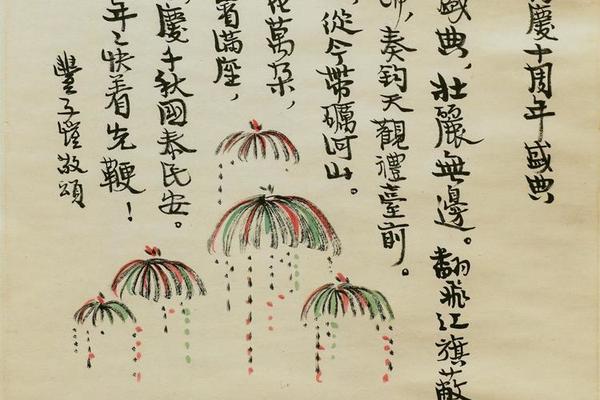 慶十周年盛典
盛典,壯麗無邊。翻飛紅旗蔽
,奏鈞天觀禮臺前。
,從今帶礪河山。
花萬朵,
滿座,
慶千秋國泰民安。
年〻快着先鞭!
豐子愷敬頌